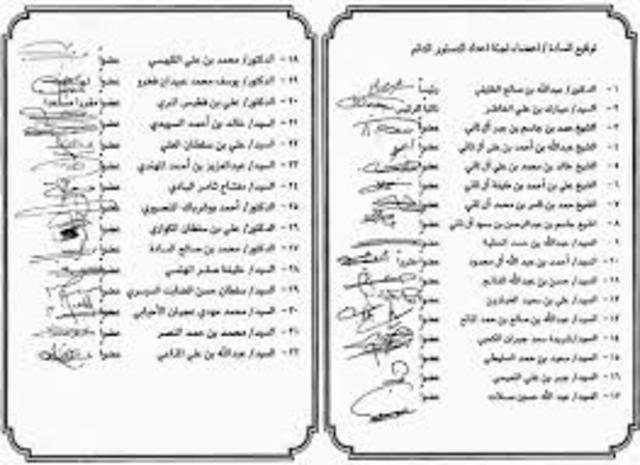 توقيع السادة / أعضاء لجنة اعداد الدستور الدائم
١ - الدكتور/ عبدالله بن صالح الخليفي رئيساً
٢ - السيد/ مبارك بن علي الخاطر نائباً للرئيس
٣ - الشيخ حمد بن جاسم بن جبر آل ثاني عضواً
٤ - الشيخ عبدالله بن أحمد بن علي آل ثاني عضواً
٥ - الشيخ خالد بن محمد بن علي آل ثاني عضواً
٦ - الشيخ علي بن أحمد بن خليفة آل ثاني عضواً
٧ - الشيخ حمد بن ناصر بن محمد آل ثاني عضواً
٨ - الشيخ جاسم بن عبدالرحمن بن سعود آل ثاني عضواً
٩ - السيد/ عبدالله بن حمد العطية عضواً
١٠ - السيد/ أحمد بن عبدالله آل محمود
١١ - السيد/ حسن بن عبد الله الغانم عضواً
١٢ - السيد/ علي بن سعيد عضواً
١٣ - السيد/ عبدالله بن صالح بن حمد المانع عضواً
١٤ - السيد/ سعد جبران الكعبي عضواً
١٥ - السيد/ سعيد بن حمد السليطي عضواً
١٦ - السيد/ جبر بن علي النعيمي عضواً
١٧ - السيد/ عبد الله حسين عضواً
١٨ - الدكتور/ محمد بن علي الكبيسي عضواً
١٩ - الدكتور/ يوسف محمد عبيدان فخرو عضواً
٢٠ - الدكتور/ علي بن فطيس المري عضواً
٢١ - السيد/ خالد بن أحمد السويدي عضواً
٢٢ - السيد/ علي بن سلطان العلي عضواً
٢٣ - السيد/ عبدالعزيز بن أحمد المهندي عضواً
٢٤ - السيد/ مفتاح ثامر البادي عضواً
٢٥ - السيد/ أحمد بوشرباك المنصوري عضواً
٢٦ - الدكتور/ علي بن سلطان الكواري عضواً
٢٧ - الدكتور/ محمد بن صالح السادة عضواً
٢٨ - السيد/ خليفة صقر الهتمي عضواً
٢٩ - السيد/ سلطان حسن الضابت الدوسري عضواً
٣٠ - السيد/ محمد مهدي عجيان الأحبابي عضواً
٣١ - السيد/ محمد بن حمد النصر عضواً
٣٢ - السيد/ عبدالله بن علي المناعي عضواً